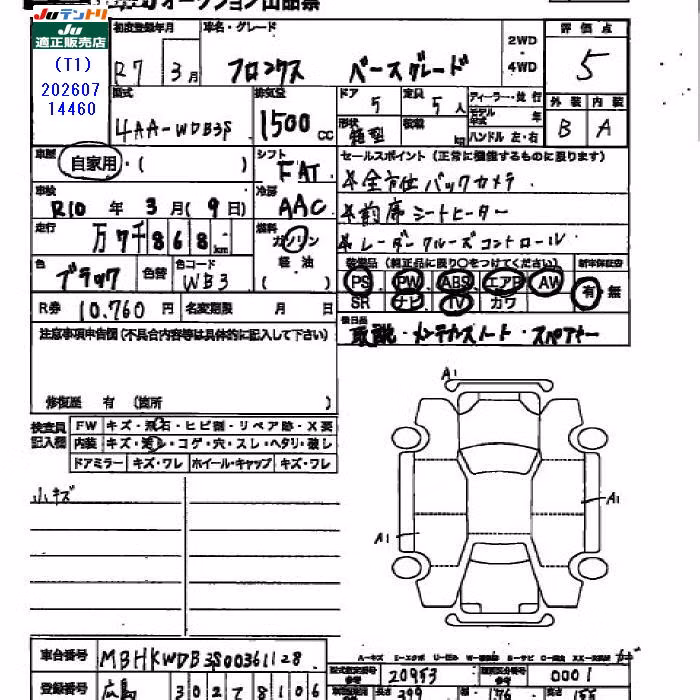 オークション出品票
Juテントリ
JU
適正販売店
(T1)
202607
14460
初度登録年月 車名・グレード
R7年 3月 フロンクス ベースグレード
2WD・4WD
評価点
5
型式 4AA-WDB3S
排気量 1500cc
ドア 5 定員 5人
形状 箱型 積載 kg
ディーラー・並行
モデル年式 年
ハンドル 左・右
外装 内装
B A
車歴 自家用・( )
シフト FAT
セールスポイント(正常に機能するものに限ります)
全方位バックカメラ
前席シートヒーター
レーダークルーズコントロール
車検 R10年 3月(9日)
冷房 AAC
走行 万7千868km
燃料 ガソリン 軽油 ( )
色 ブラック 色替 色コード WB3
装備品(純正品に限り○をつけてください) 新車保証書
PS PW ABS エアB AW 有・無
SR ナビ TV カワ
R券 10,760円 名変期限 月 日
後日品
取説・メンテナンスノート・スペアキー
注意事項申告欄(不具合内容等は具体的に記入して下さい)
修復歴 有 (箇所 )
検査員記入欄
FW キズ・飛石・ヒビ割・リペア跡・X要
内装 キズ・汚れ・コゲ・穴・スレ・ヘタリ・破レ
ドアミラー キズ・ワレ ホイール・キャップ キズ・ワレ
小キズ
A1
A1
A1
車台番号 MBHKWDB3S00361128
登録番号 広島 302 8106
型式指定番号 20953 類別区分番号 0001
長さ 399 幅 176 高さ 155